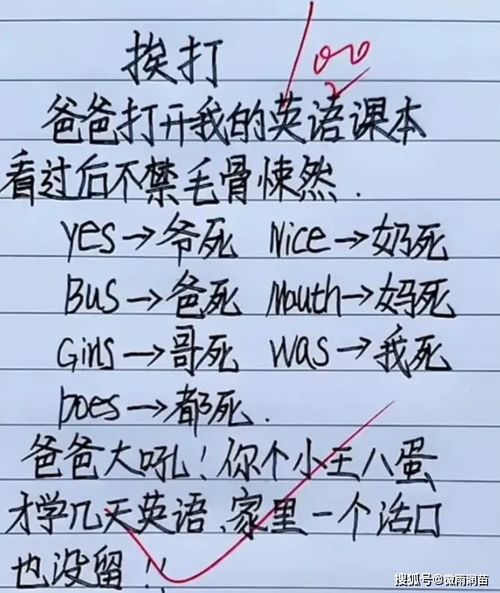 挨打
100
爸爸打开我的英语课本
看过后不禁毛骨悚然.
yes→爷死 Nice→奶死
Bus→爸死 Mouth→妈死
Girls→哥死 was→我死
Does→都死.
爸爸大吼!你个小王八蛋
才学几天英语,家里一个活口
也没留!!
搜狐号@微雨润苗